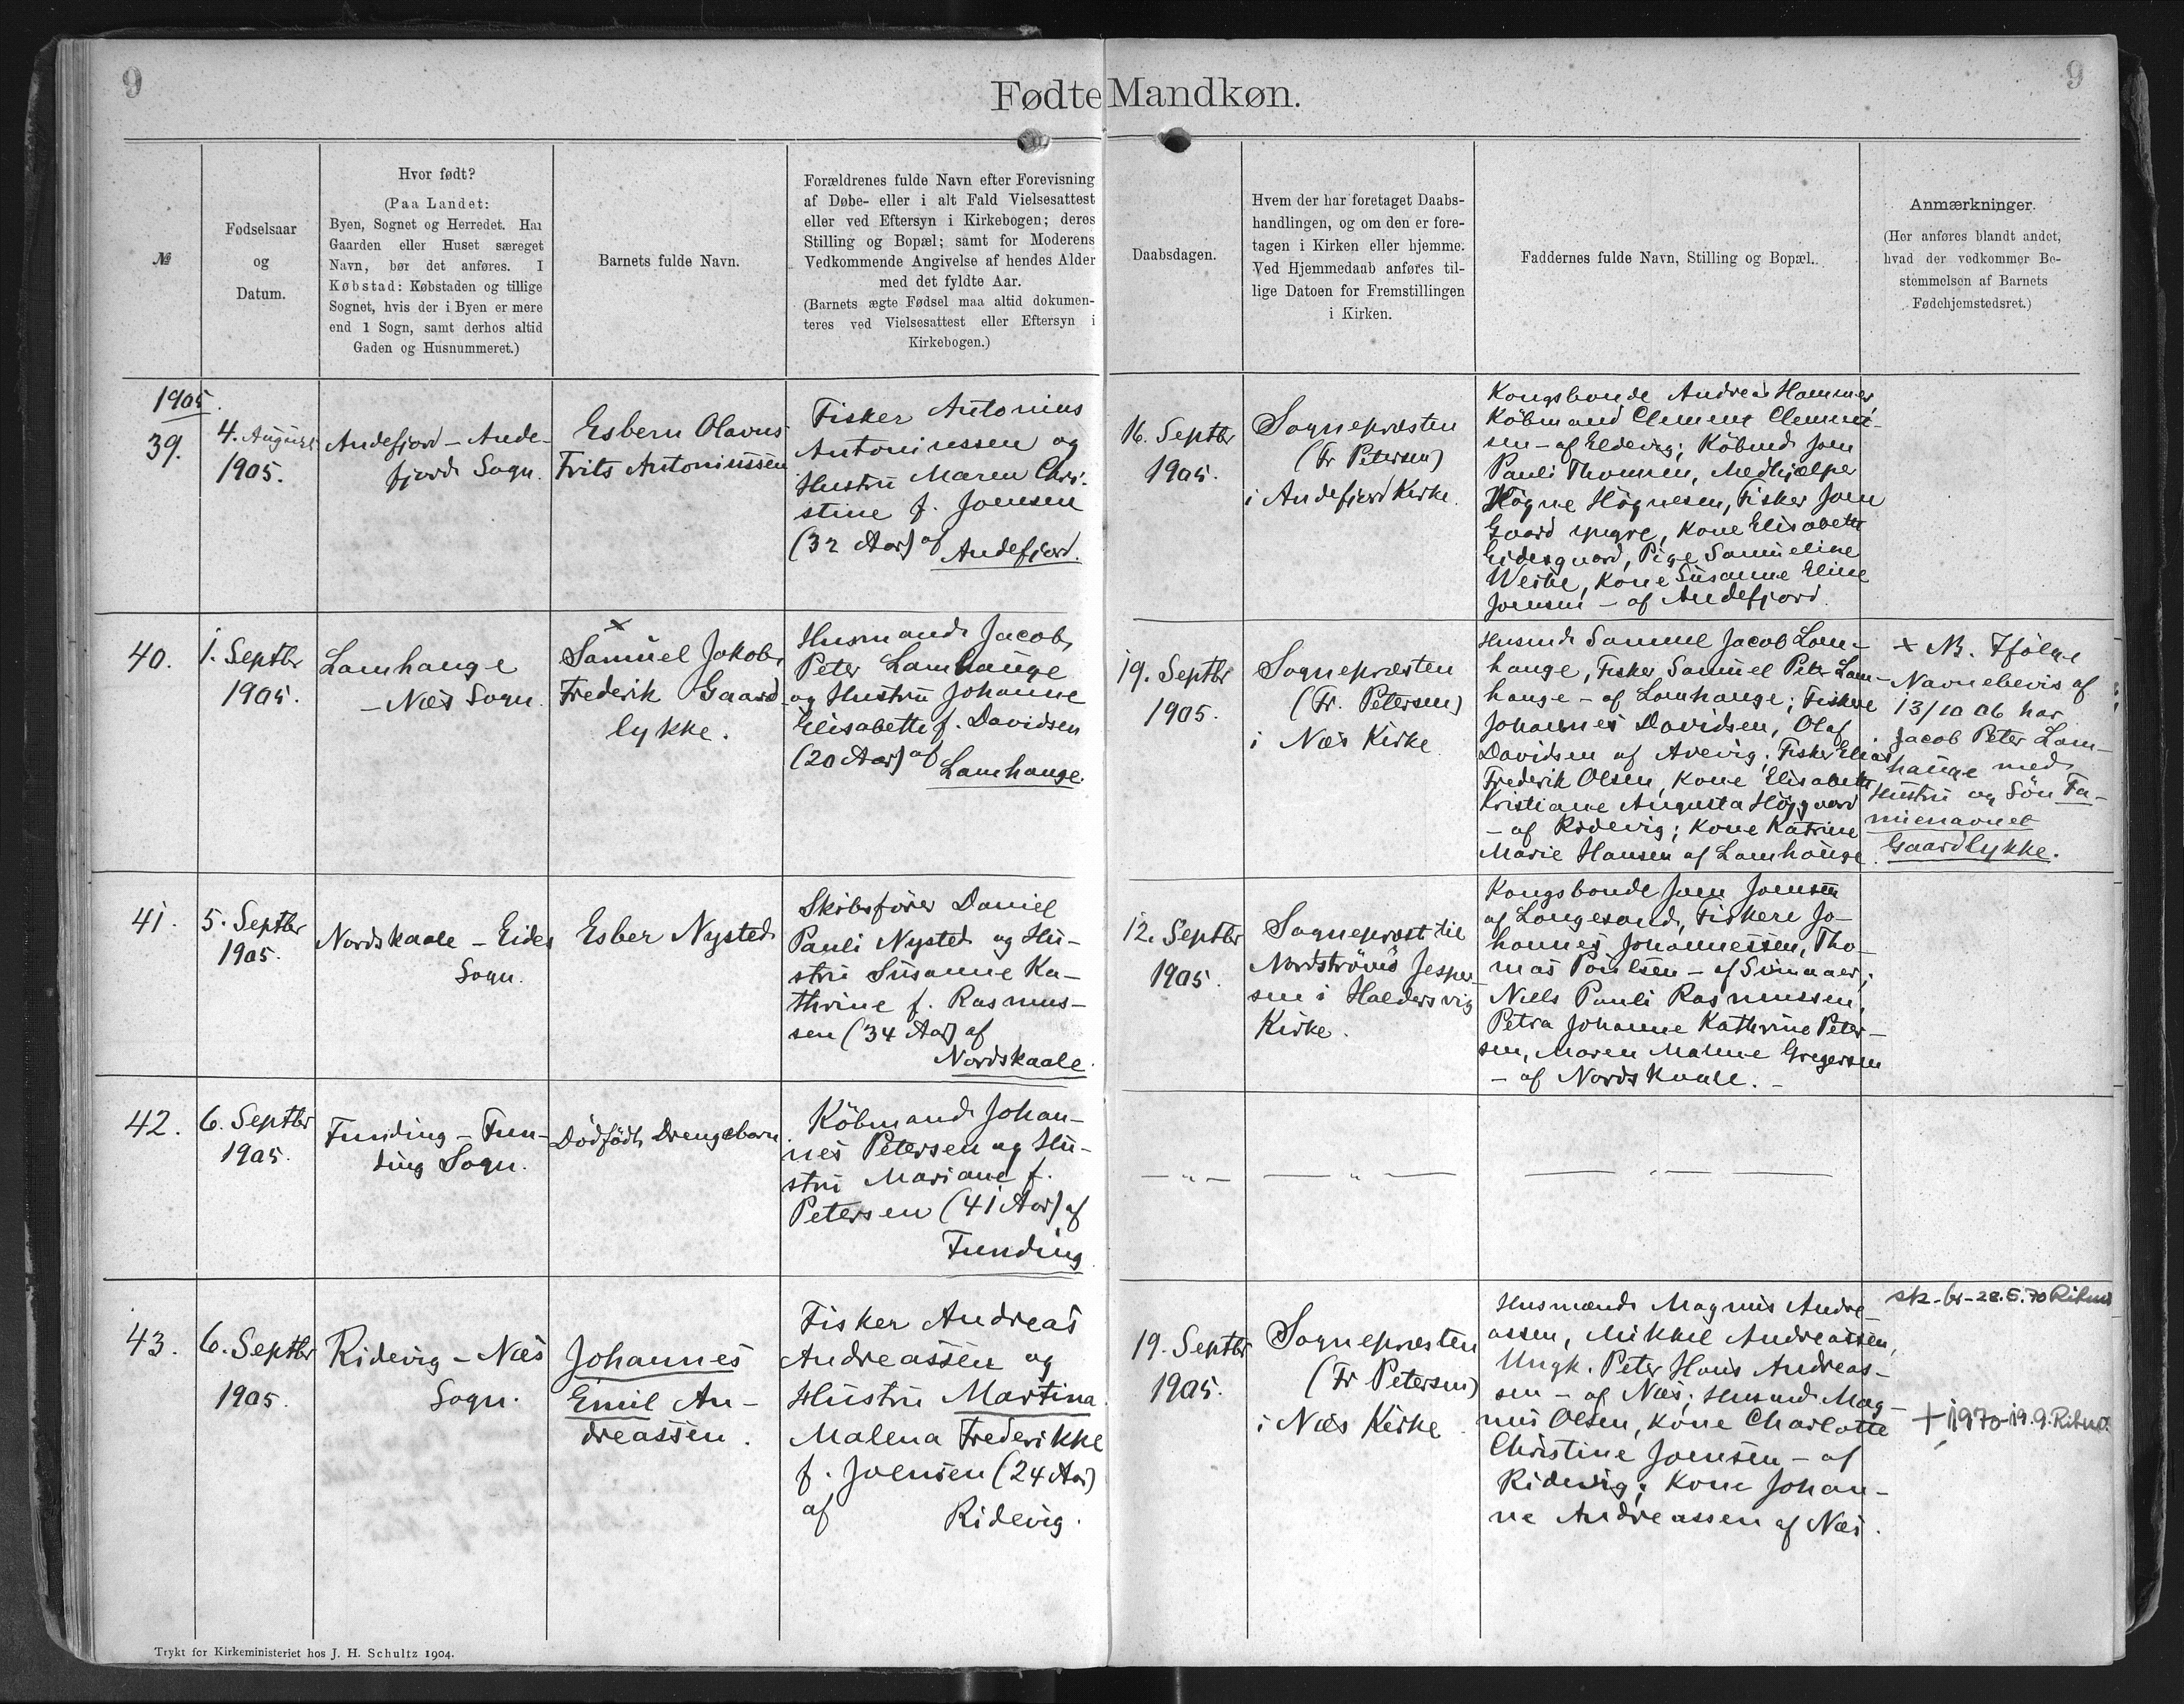 9
9
Fødte Mandkøn.
№
Fødselsaar
og
Datum.
Hvor født?
(Paa Landet:
Byen, Sognet og Herredet. Har
Gaarden eller Huset særeget
Navn, bør det anføres. I
Købstad: Købstaden og tillige
Sognet, hvis der i Byen er mere
end 1 Sogn, samt derhos altid
Gaden og Husnummeret.)
Barnets fulde Navn.
Forældrenes fulde Navn efter Forevisning
af Døbe- eller i alt Fald Vielsesattest
eller ved Eftersyn i Kirkebogen; deres
Stilling og Bopæl; samt for Moderens
Vedkommende Angivelse af hendes Alder
med det fyldte Aar.
(Barnets ægte Fødsel maa altid dokumen-
teres ved Vielsesattest eller Eftersyn i
Kirkebogen.)
Daabsdagen.
Hvem der har foretaget Daabs-
handlingen, og om den er fore-
tagen i Kirken eller hjemme.
Ved Hjemmedaab anføres til-
lige Datoen for Fremstillingen
i Kirken.
Faddernes fulde Navn, Stilling og Bopæl.
Anmærkninger.
(Her anføres blandt andet,
hvad der vedkommer Be-
stemmelsen af Barnets
Fødehjemstedsret.)
1905.
39.
4. August
1905.
Andefjord – Ande-
fjord Sogn.
Esbern Olavus
Frits Antoniussen
Fisker Antonius
Antoniussen og
Hustru Maren Chri-
stine f. Joensen
(32 Aar) af
Andefjord.
16. Septbr
1905.
Sognepræsten
(Fr Petersen)
i Andefjord Kirke.
Kongsbonde Andreas Hammer,
Købmand Clement Clement-
sen – af Eldevig; Købmd Joen
Pauli Thomsen, Medhjælper
Högne Högnesen, Fisker Joen
Gaard yngre, Kone Elisabeth
Eidesgaard, Pige Samueline
Weihe, Kone Susanne Eline
Joensen – af Andefjord.
40.
1. Septbr
1905.
Lamhauge
– Næs Sogn.
×
Samuel Jakob
Frederik Gaard-
lykke.
Husmand Jacob
Peter Lamhauge
og Hustru Johanne
Elisabeth f. Davidsen
(20 Aar) af
Lamhauge.
19. Septbr
1905.
Sognepræsten
(Fr. Petersen)
i Næs Kirke
Husmd Samuel Jacob Lam-
hauge, Fisker Samuel Peter Lam-
hauge – af Lamhauge; Fiskere
Johannes Davidsen, Olaf
Davidsen af Arevig; Fisker Elias
Frederik Olsen, Kone Elisabeth
Kristiane Augusta Højgaard
– af Ridevig; Kone Katrine
Marie Hansen af Lamhauge.
× NB. Ifölge
Navnebevis af
13/10 06 har
Jacob Peter Lam-
hauge med
Hustru og Sön Fa-
mienavnet
Gaardlykke.
41.
5. Septbr
1905.
Nordskaale – Eides
Sogn.
Esber Nysted
Skibsförer Daniel
Pauli Nysted og Hu-
stru Susanne Ka-
thrine f. Rasmus-
sen (34 Aar) af
Nordskaale.
12. Septbr
1905.
Sognepræst til
Nordströmö Jesper-
sen i Haldersvig
Kirke.
Kongsbonde Joen Joensen
af Langesand, Fiskere Jo-
hannes Johannessen, Tho-
mas Poulsen – af Svinaaer;
Niels Pauli Rasmussen,
Petra Johanne Kathrine Peter-
sen, Maren Malene Gregersen
– af Nordskaale. –
42.
6. Septbr
1905.
Funding – Fun-
ding Sogn.
Dödfödt Drengebarn
Köbmand Johan-
nes Petersen og Hu-
stru Mariane f.
Petersen (41 Aar) af
Funding
— " —
— " —
— " —
43.
6. Septbr
1905.
Ridevig – Næs
Sogn.
Johannes
Emil An-
dreassen.
Fisker Andreas
Andreassen og
Hustru Martina
Malena Frederikke
f. Joensen (24 Aar)
af Ridevig.
19. Septbr
1905.
Sognepræsten
(Fr Petersen)
i Næs Kirke
Husmænd Magnus Andre-
assen, Mikkel Andreassen,
Ungk. Peter Hans Andreas-
sen – af Næs; Husmd Mag-
nus Olsen, Kone Charlotte
Christine Joensen – af
Ridevig; Kone Johan-
ne Andreassen af Næs.
+ 1970-19.9.
Trykt for Kirkeministeriet hos J. H. Schultz 1904.